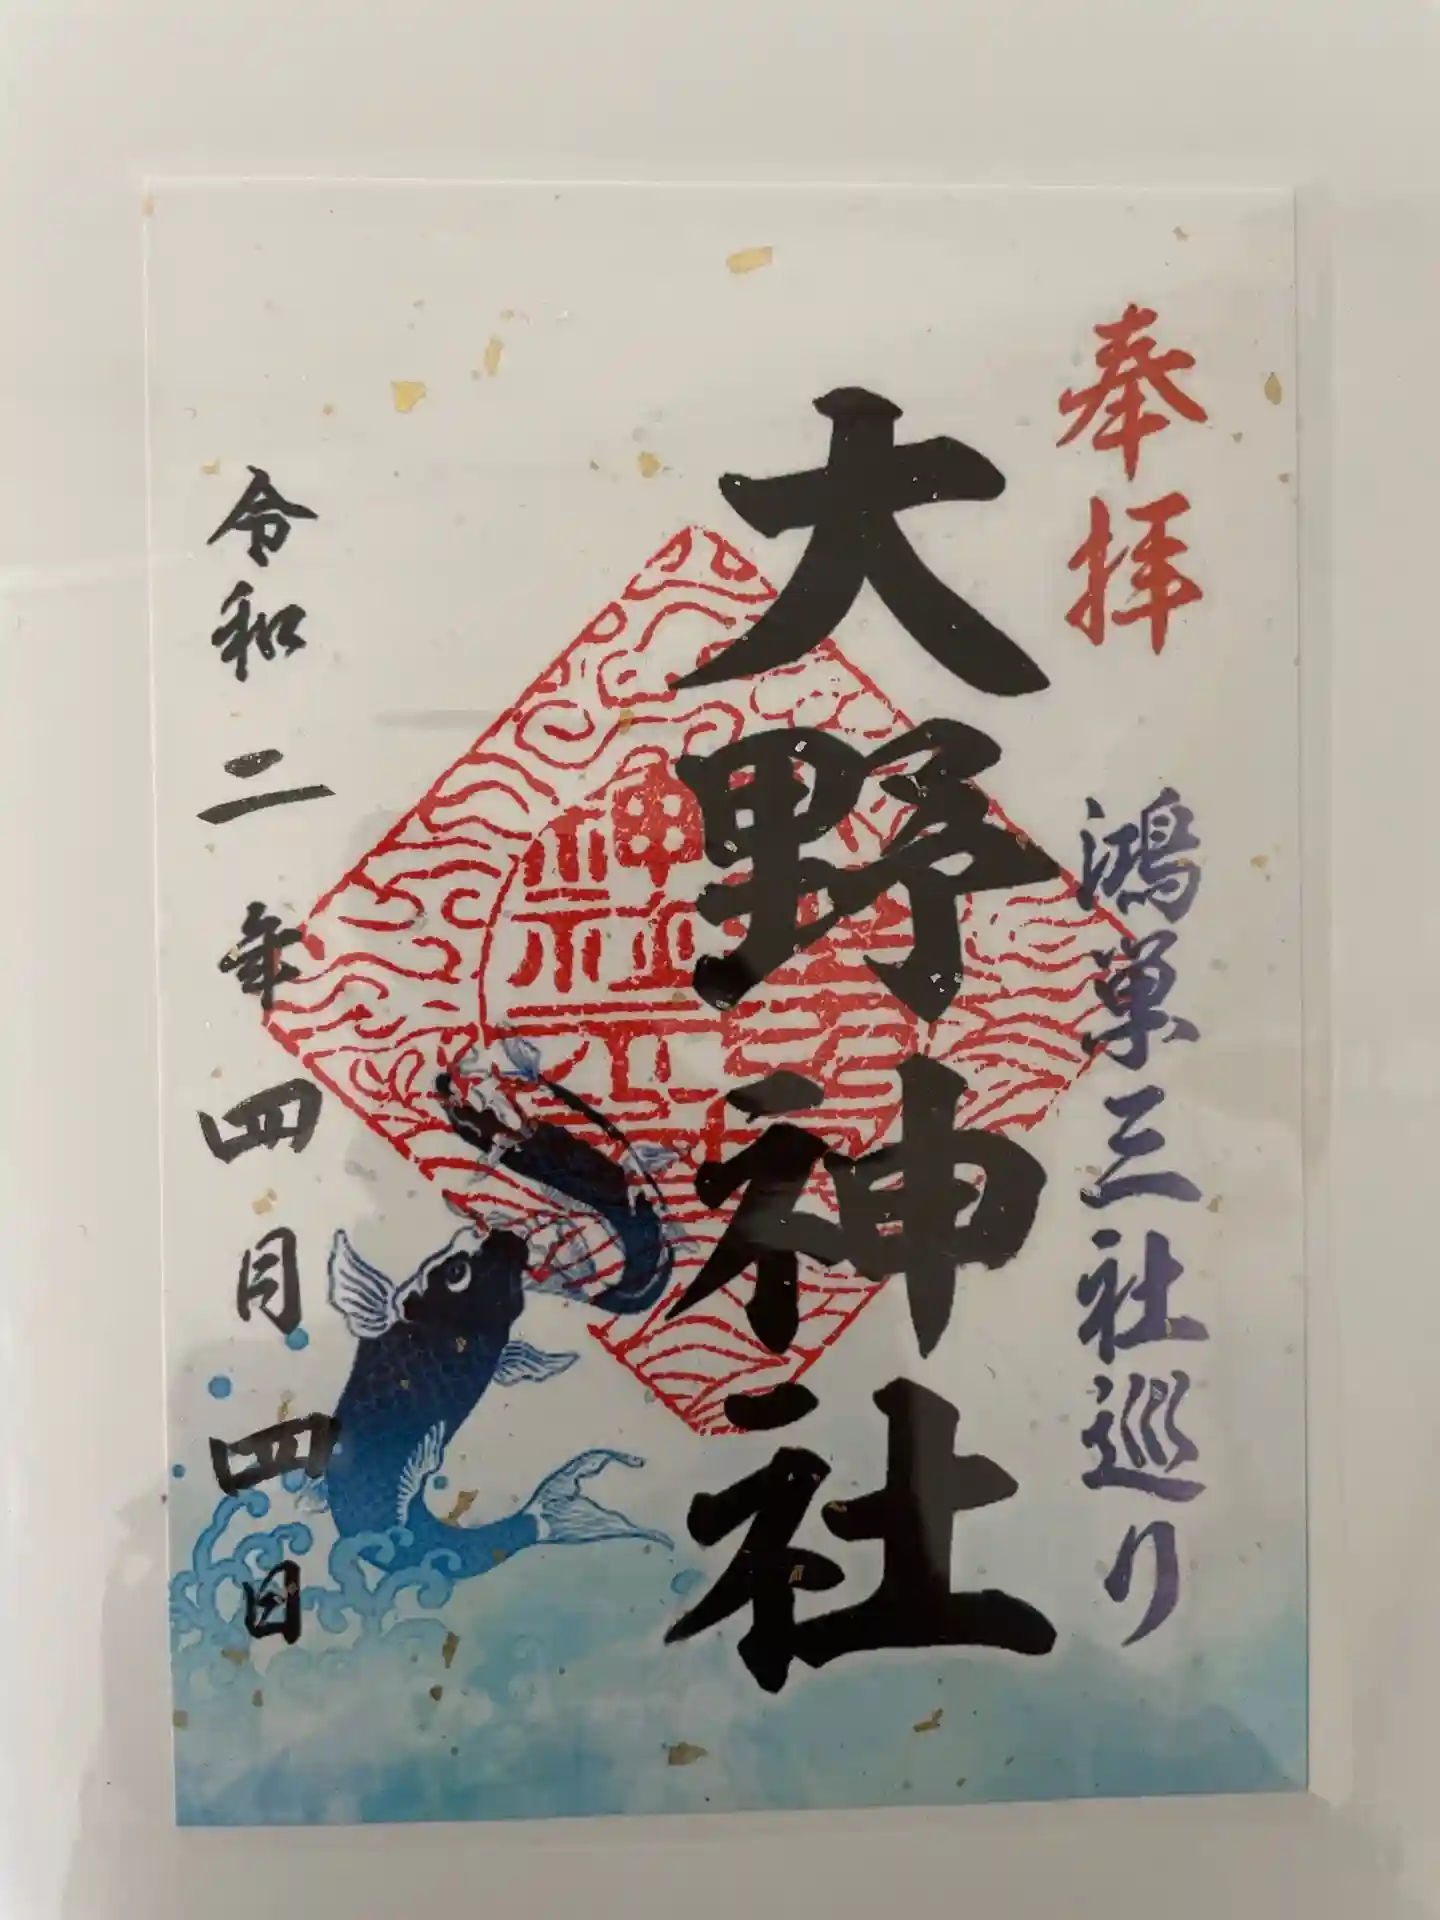 奉拝
鴻巣三社巡り
大野神社
令和二年四月四日